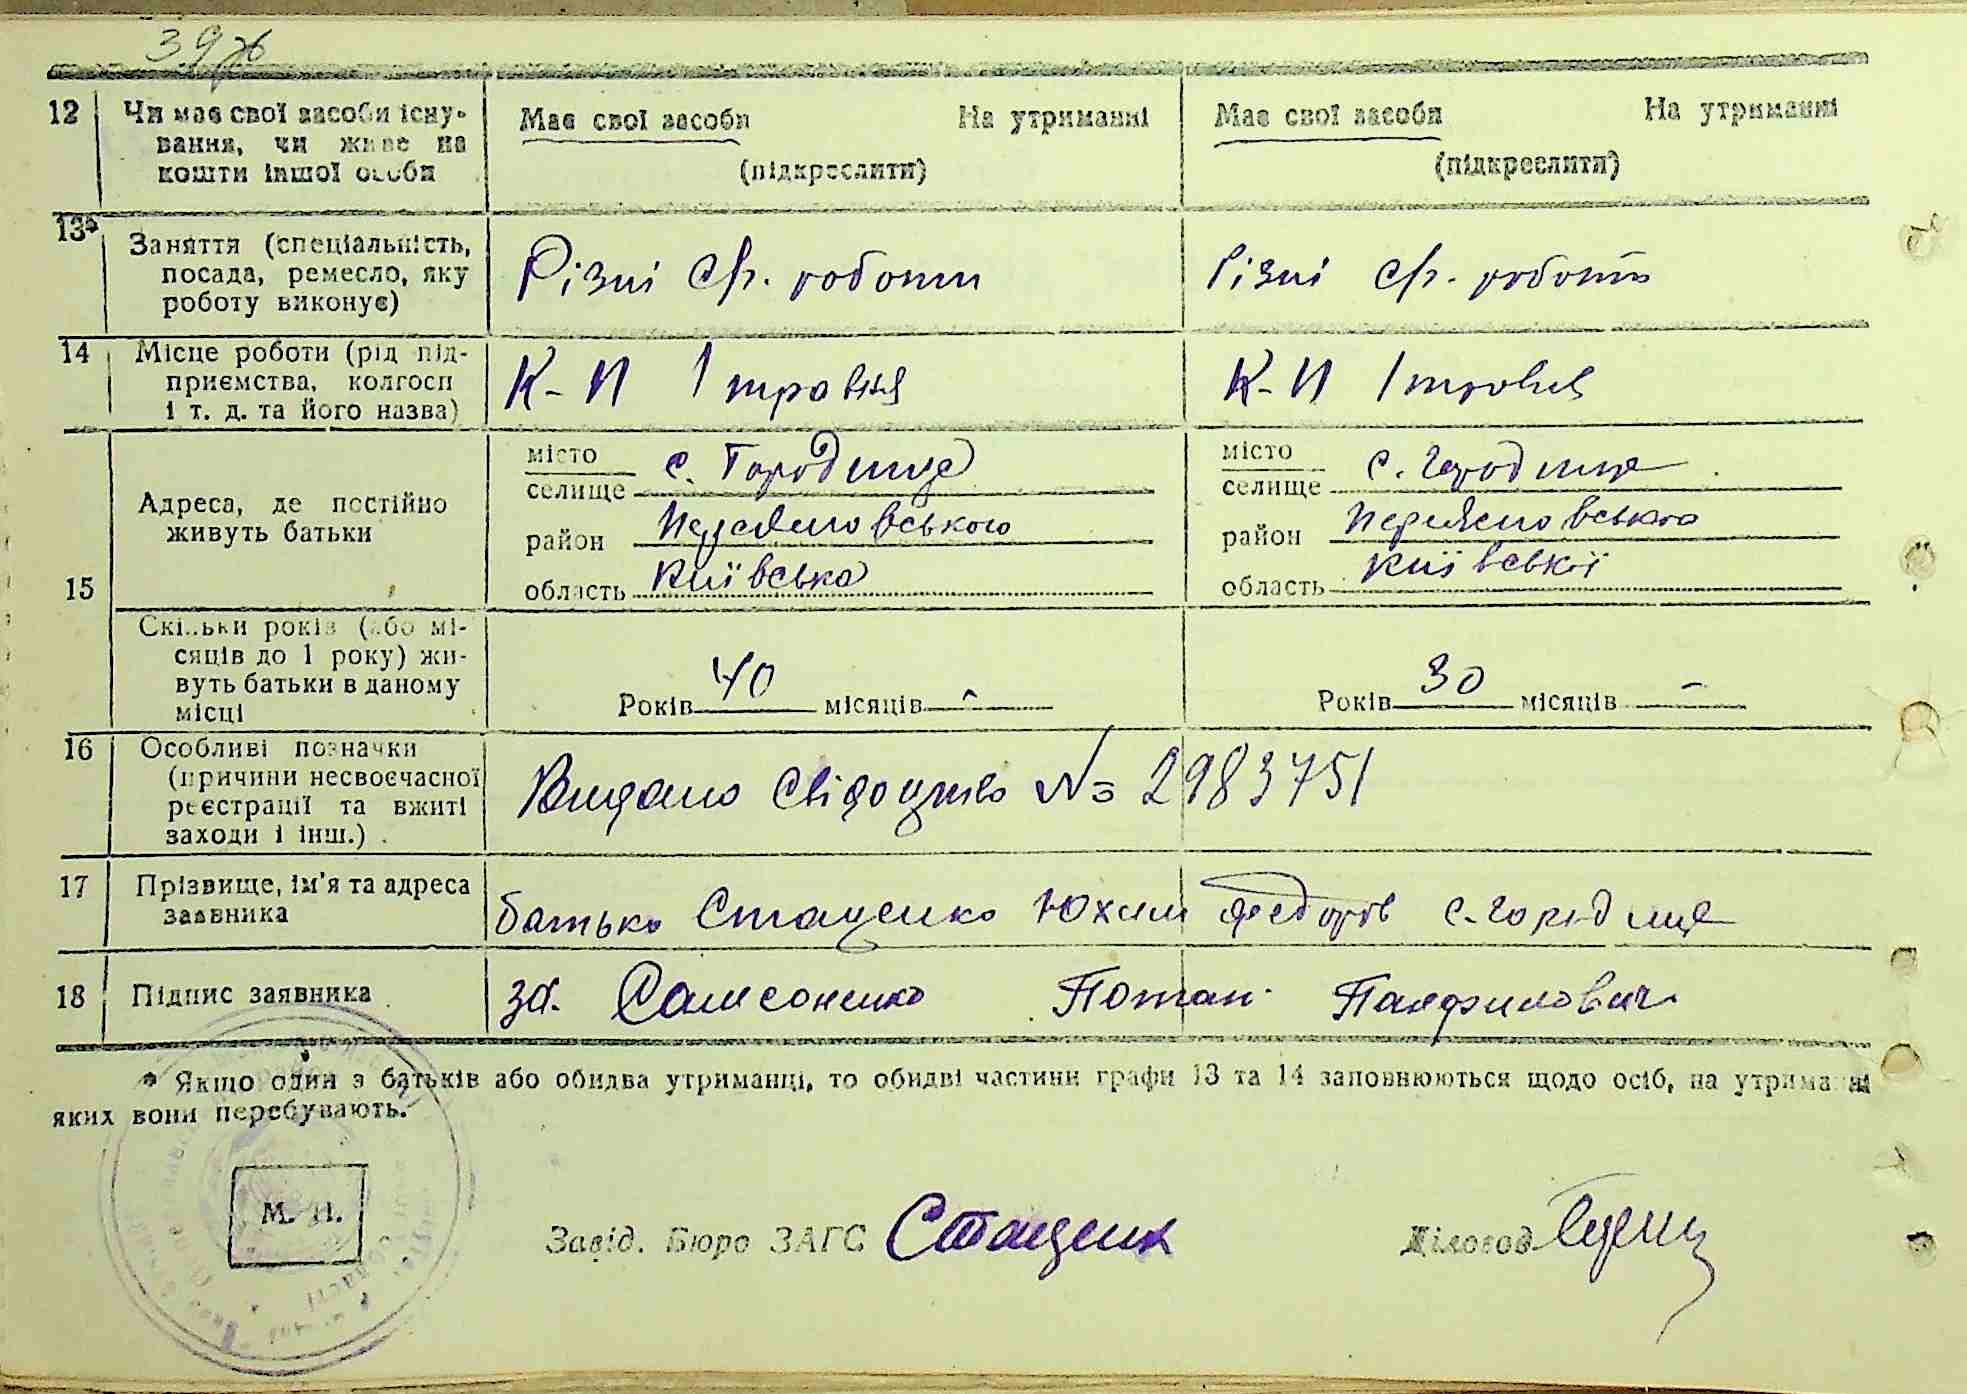 39
12 Чи має свої засоби існу-
вання, чи живе на
кошти іншої особи
Має свої засоби На утриманні
(підкреслити)
Має свої засоби На утриманні
(підкреслити)
13* Заняття (спеціальність,
посада, ремесло, яку
роботу виконує)
Різні с/г. роботи
Різні с/г. роботи
14 Місце роботи (рід під-
приємства, колгосп
і т. д. та його назва)
К-п 1 травня
К-п 1 травня
15 Адреса, де постійно
живуть батьки
місто
селище с. Городище
район
область Київська
місто
селище с. Городище
район
область Київської
Скільки років (або мі-
сяців до 1 року) жи-
вуть батьки в даному
місці
Років 40 місяців -
Років 30 місяців -
16 Особливі позначки
(причини несвоєчасної
реєстрації та вжиті
заходи і інш.)
Видано свідоцтво № 2983751
17 Прізвище, ім'я та адреса
заявника
батько Стаценко Юхим Федоров с. Городище
18 Підпис заявника
за. Самсоненко Потап Панфилович
* Якщо один з батьків або обидва утриманці, то обидві частини графи 13 та 14 заповнюються щодо осіб, на утриманні
яких вони перебувають.
М. П.
Завід. Бюро ЗАГС Стаценк
Діловод